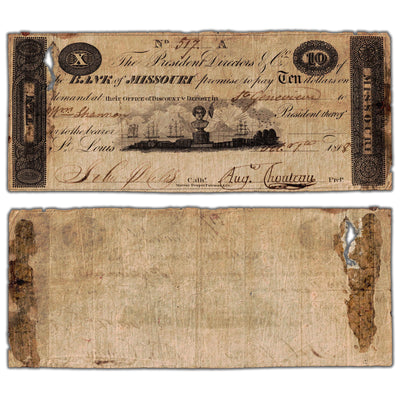 No. 517. A
X The President Directors & Co. of 10
the BANK of MISSOURI promise to pay Ten dollars on
demand at their OFFICE of DISCOUNT & DEPOSIT in Ste Genevieve to
Wm Shannon President thereof
or to the bearer
St. Louis 1818
Cashr. Aug. Chouteau Prest.
MISSOURI